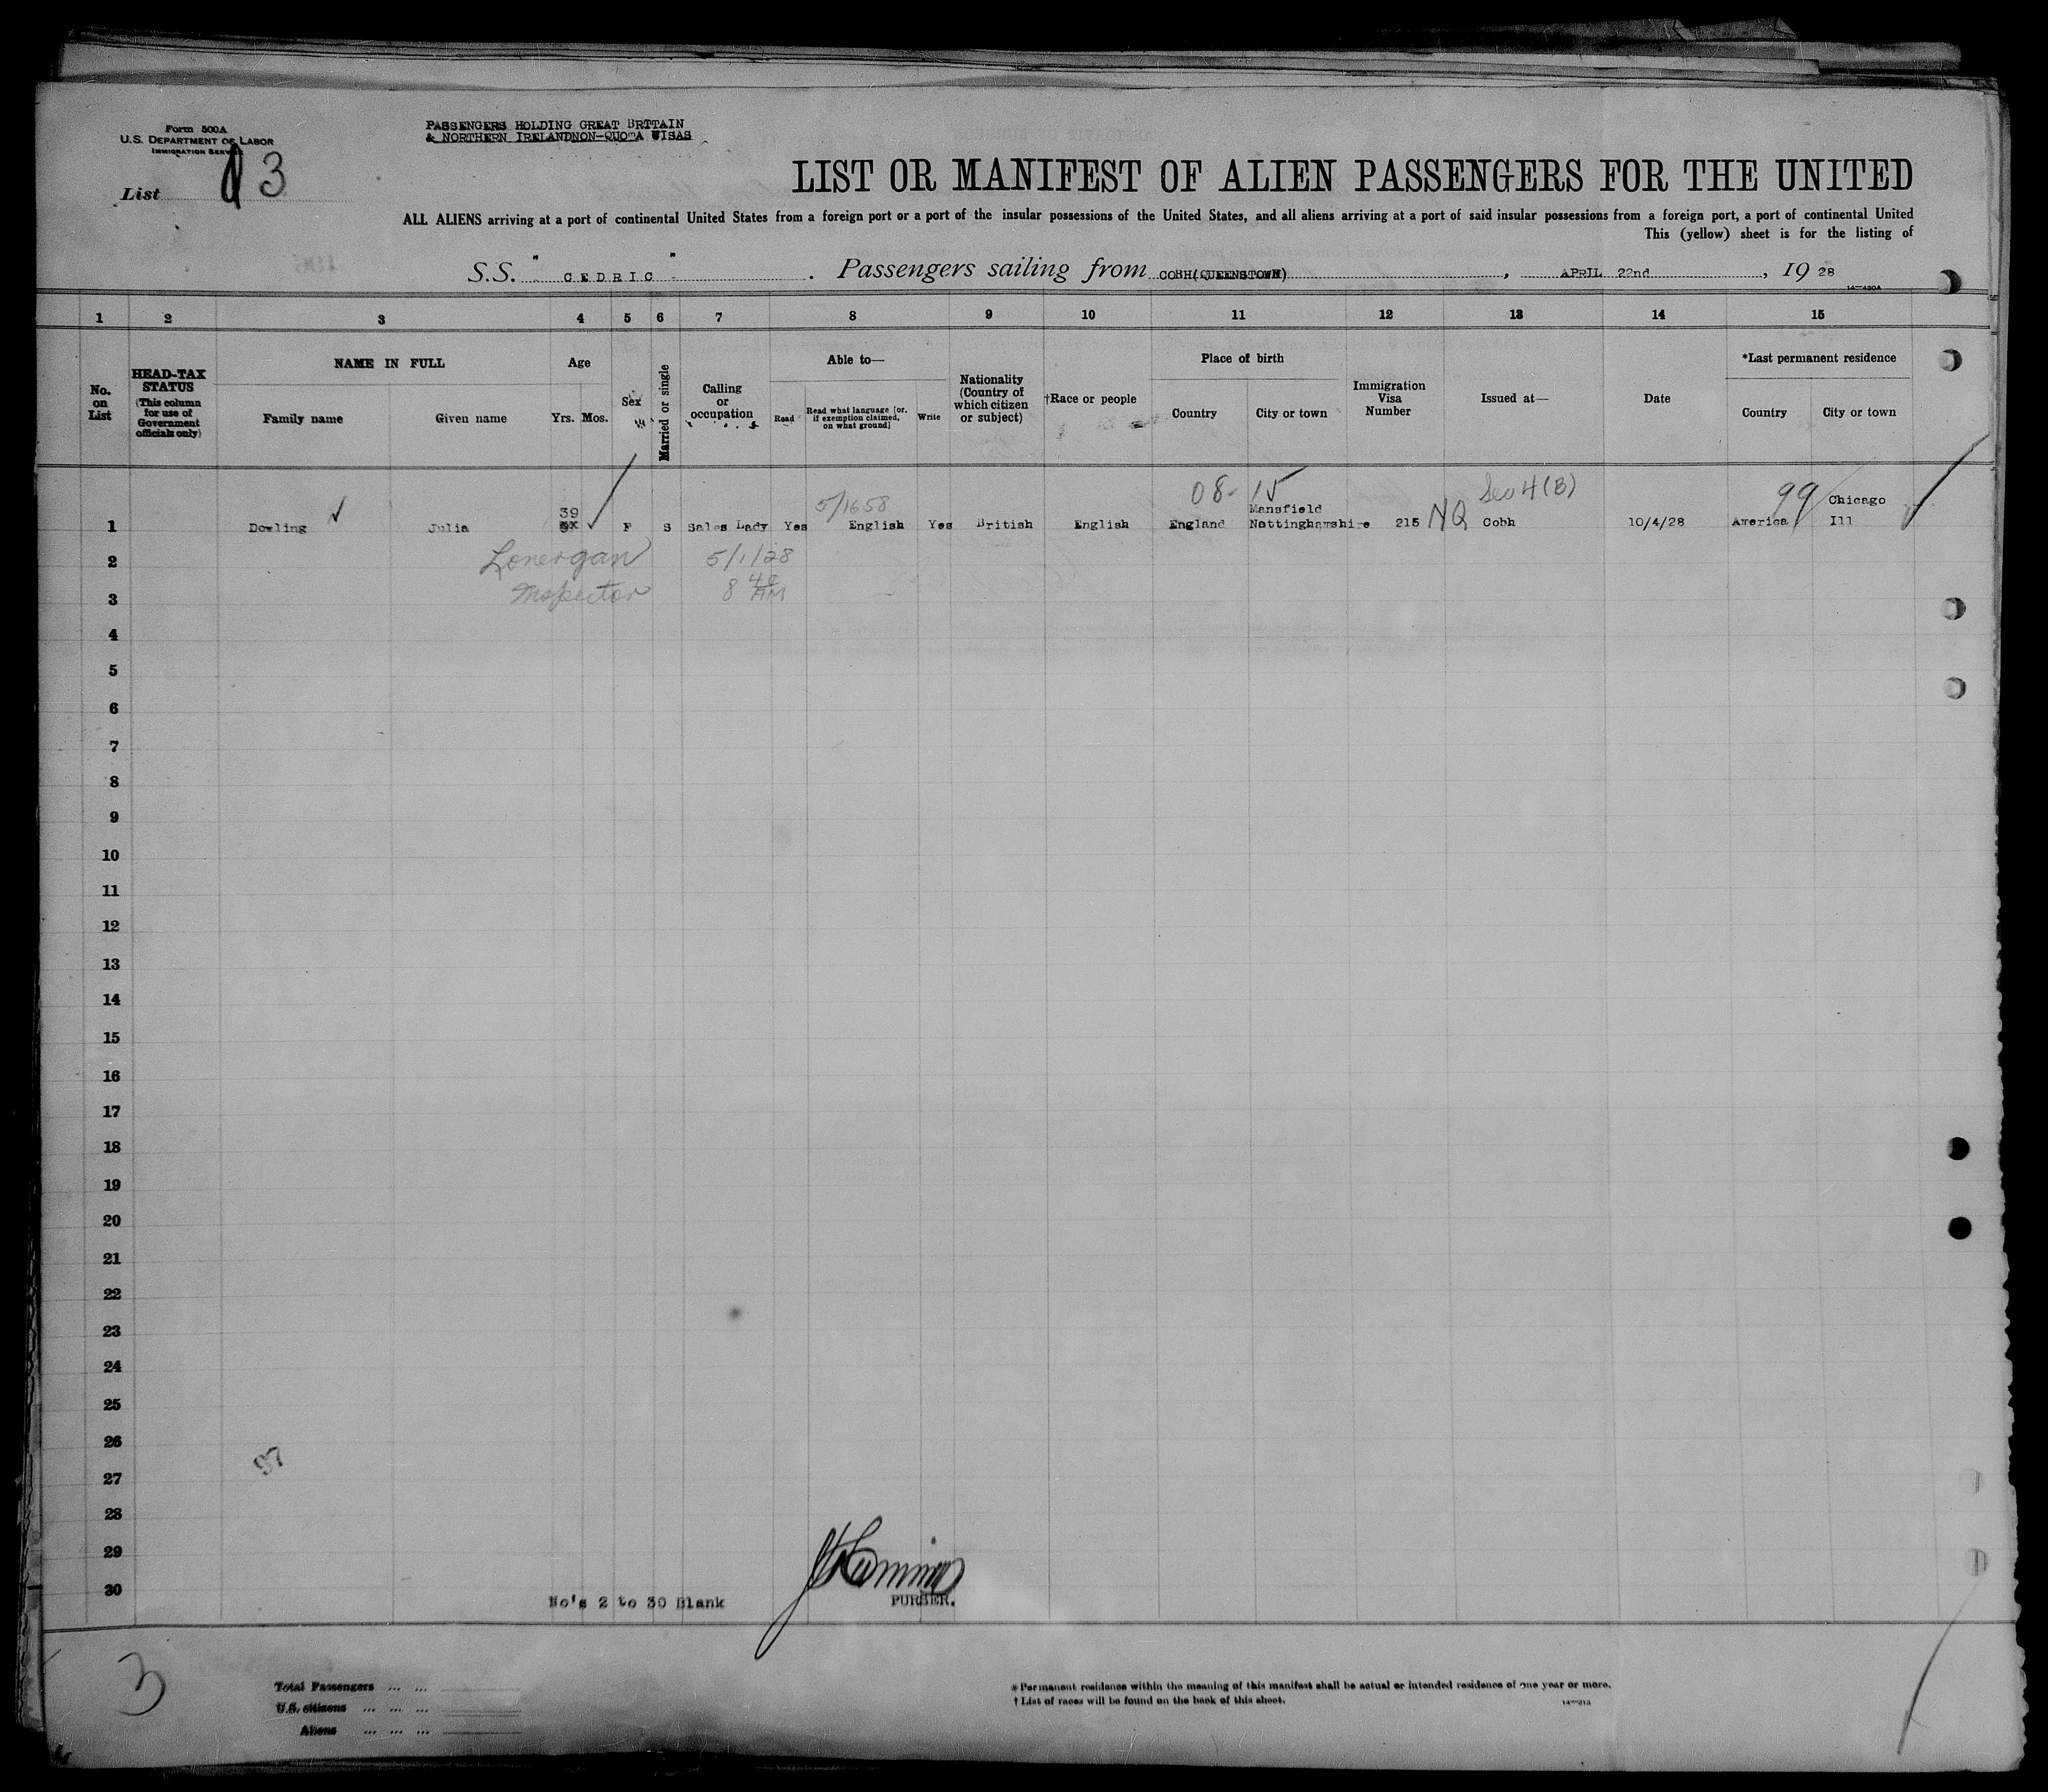 Form 500A
U.S. DEPARTMENT OF LABOR
IMMIGRATION SERVICE
List 3
PASSENGERS HOLDING GREAT BRTTAIN
& NORTHERN IRELANDNON-QUOTA VISAS
LIST OR MANIFEST OF ALIEN PASSENGERS FOR THE UNITED
ALL ALIENS arriving at a port of continental United States from a foreign port or a port of the insular possessions of the United States, and all aliens arriving at a port of said insular possessions from a foreign port, a port of continental United
This (yellow) sheet is for the listing of
S.S. " CEDRIC " . Passengers sailing from COBH(QUEENSTOWN) , APRIL 22nd , 19 28
14—430A
1 2 3 4 5 6 7 8 9 10 11 12 13 14 15
No. on List
HEAD-TAX STATUS (This column for use of Government officials only)
NAME IN FULL
Family name Given name
Age
Yrs. Mos.
Sex
Married or single
Calling or occupation
Able to—
Read
Read what language [or, if exemption claimed, on what ground]
Write
Nationality (Country of which citizen or subject)
†Race or people
Place of birth
Country City or town
Immigration Visa Number
Issued at—
Date
*Last permanent residence
Country City or town
5/1658 08- 15 Sec 4(B) 99
39 Mansfield Chicago
1 Dowling Julia F S Sales Lady Yes English Yes British English England Nottinghamshire 215 NQ Cobh 10/4/28 America Ill
2 Lonergan 5/1/28
3 Inspector 8 40 AM
4
5
6
7
8
9
10
11
12
13
14
15
16
17
18
19
20
21
22
23
24
25
26
97
27
28
29
30
No's 2 to 30 Blank
PURSER.
3
Total Passengers ... ...
U.S. citizens ... ... ...
Aliens ... ... ...
* Permanent residence within the meaning of this manifest shall be actual or intended residence of one year or more.
† List of races will be found on the back of this sheet.
14—213